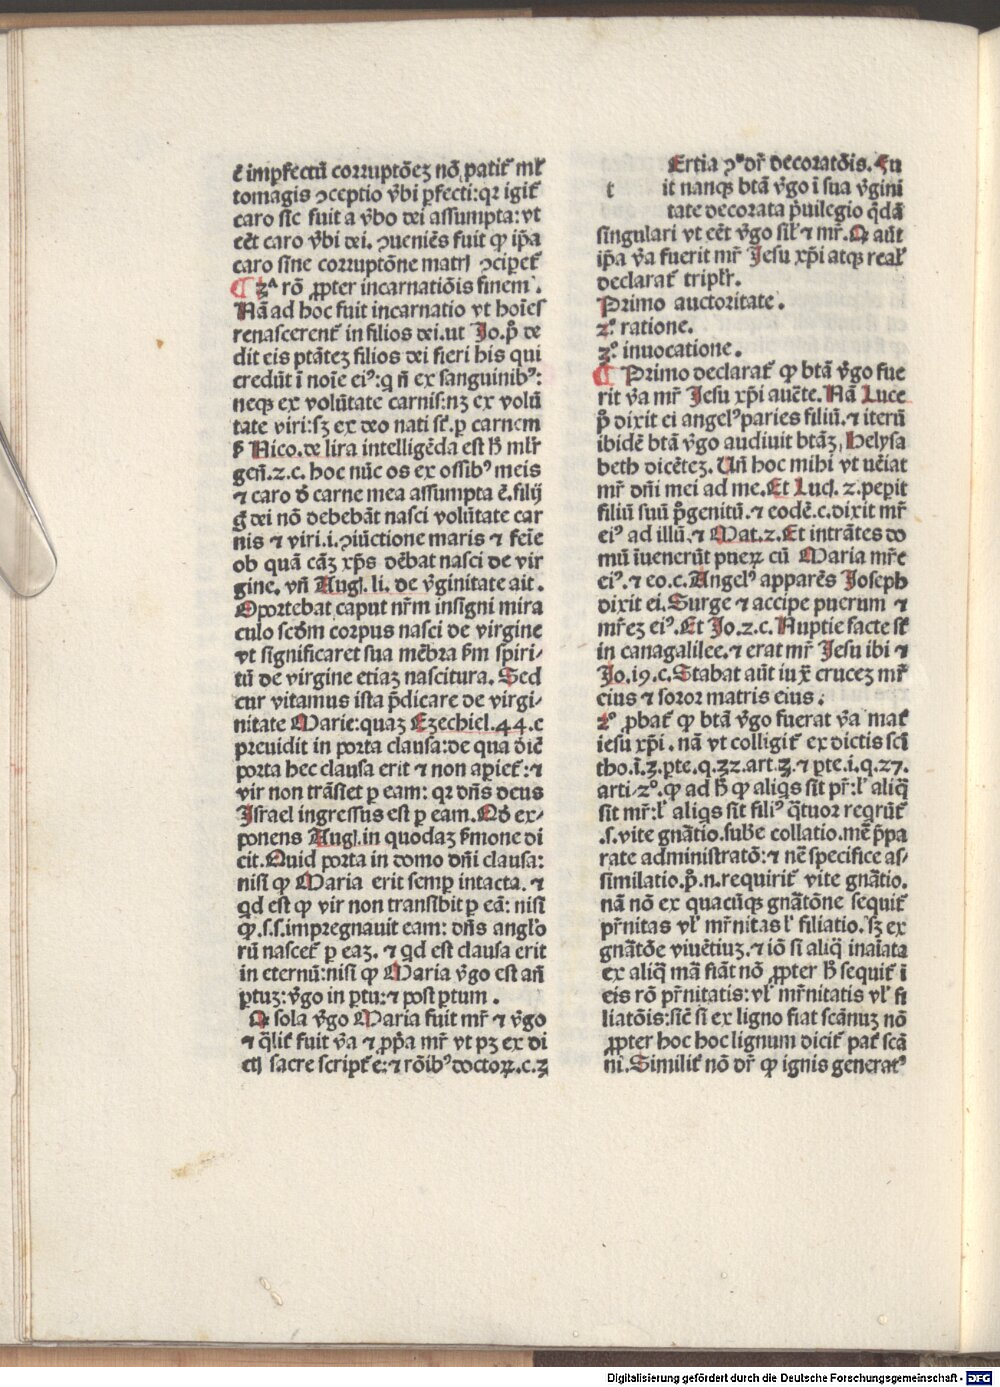 ē imꝑfectū corruptōeꝫ nō patit᷑ ml̄
tomagis ꝯceptio v̄bi ꝑfecti: qꝛ igit᷑
caro sic fuit a v̄bo dei assumpta: vt
eēt caro v̄bi dei. ꝯueniēs fuit ꝙ ip̄a
caro sine corruptōne matrꝭ ꝯcipet᷑
¶ 3ᵃ rō ꝓpter incarnatiōis finem.
Nā ad hoc fuit incarnatio vt hoīes
renascerent᷑ in filios dei. ut Jo. p̄ de
dit eis ptātez filios dei fieri his qui
credūt ī noīe eiꝰ: q n̄ ex sanguinibꝰ:
neqꝫ ex volūtate carnis: nꝫ ex volū
tate viri: sꝫ ex deo nati st̄. ꝑ carnem
Nico. de lira intelligēda est h̄ ml̄r
gen̄. 2. c. hoc nūc os ex ossibꝰ meis
⁊ caro d̄ carne mea assumpta ē. filij
g̊ dei nō debebāt nasci volūtate car
nis ⁊ viri. i. ꝯiūctione maris ⁊ feīe
ob quā cāꝫ xp̄s dēbat nasci de vir
gine. vn̄ Augꝭ. li. de v̄ginitate ait.
Oportebat caput nr̄m insigni mira
culo scd̄m corpus nasci de virgine
vt significaret sua mēbra ẜm spiri⸗
tū de virgine etiaꝫ nascitura. Sed
cur vitamus ista p̄dicare de virgi⸗
nitate Marie: quaꝫ Ezechiel. 44. c
preuidit in porta clausa: de qua dic̄
porta hec clausa erit ⁊ non apiet᷑: ⁊
vir non trāsiet ꝑ eam: qꝛ dn̄s deus
Israel ingressus est ꝑ eam. Qd̄ ex⸗
ponens Augꝭ. in quodaꝫ ẜmone di
cit. Quid porta in domo dn̄i clausa:
nisi ꝙ Maria erit semꝑ intacta. ⁊
qd est ꝙ vir non transibit ꝑ eā: nisi
ꝙ. s. s. impregnauit eam: dn̄s anglo
rū nascet᷑ ꝑ eaꝫ. ⁊ qd est clausa erit
in eternū: nisi ꝙ Maria v̄go est an̄
ꝑtuꝫ: v̄go in ꝑtu: ⁊ post ꝑtum.
Q sola v̄go Maria fuit mr̄ ⁊ v̄go
⁊ q̄lit᷑ fuit v̄a ⁊ ꝓpa mr̄ vt pꝫ ex di
ctꝭ sacre script᷑e: ⁊ rōibꝰ doctoꝝ. c. 3
Ertia ꝯº dr̄ decoratōis. Fu
t it nanqꝫ btā v̄go ī sua v̄gini
tate decorata p̄uilegio qdā
singulari vt eēt v̄go sil̄ ⁊ mr̄. Q aūt
ip̄a v̄a fuerit mr̄ Jesu xp̄i atqꝫ real̄
declarat᷑ tripl̄r.
Primo auctoritate.
2º. ratione.
3º. inuocatione.
¶ Primo declarat᷑ ꝙ btā v̄go fue
rit v̄a mr̄ Jesu xp̄i auc̄te. Nā Luce
p̄ dixit ei angelꝰ paries filiū. ⁊ iterū
ibidē btā v̄go audiuit btāꝫ Helysa
beth dicētez. Un̄ hoc mihi vt vēiat
mr̄ dn̄i mei ad me. Et Lucꝭ. 2. peꝑit
filiū suū p̄genitū. ⁊ eodē. c. dixit mr̄
eiꝰ ad illū. ⁊ Mat. 2. Et intrātes do
mū īuenerūt pueꝝ cū Maria mr̄e
eiꝰ. ⁊ eo. c. Angelꝰ apparēs Joseph
dixit ei. Surge ⁊ accipe puerum ⁊
mr̄eꝫ eiꝰ. Et Jo. 2. c. Nuptie facte st̄
in canagalilee. ⁊ erat mr̄ Jesu ibi ⁊
Jo. 19. c. Stabat aūt iux̄ crucez mr̄
eius ⁊ soror matris eius.
2º ꝓbat᷑ ꝙ btā v̄go fuerat v̄a mat᷑
iesu xp̄i. nā vt colligit᷑ ex dictis scī
tho. ī. 3. ꝑte. q. 32. art. 3. ⁊ ꝑte. i. q. 27.
arti. 2º. ꝙ ad h̄ ꝙ aliqs sit pr̄: l̄ aliq̄
sit mr̄: l̄ aliqs sit filiꝰ q̄tuor reqrūt᷑
.s. vite gnātio. sub̄e collatio. mē p̄pa
rate administratō: ⁊ nē specifice as⸗
similatio. p̄. n. requirit᷑ vite gnātio.
nā nō ex quacūqꝫ gnātōne sequit᷑
pr̄nitas vl̄ mr̄nitas l̄ filiatio. sꝫ ex
gnātōe viuētiuꝫ. ⁊ iō si aliq̄ inaīata
ex aliq̄ mā fiāt nō ꝓpter h̄ sequit᷑ ī
eis rō pr̄nitatis: vl̄ mr̄nitatis vl̄ fi
liatōis: sic̄ si ex ligno fiat scānuꝫ nō
ꝓpter hoc hoc lignum dicit᷑ pat᷑ scā
ni. Similit᷑ nō dr̄ ꝙ ignis generatꝰ
Digitalisierung gefördert durch die Deutsche Forschungsgemeinschaft - DFG